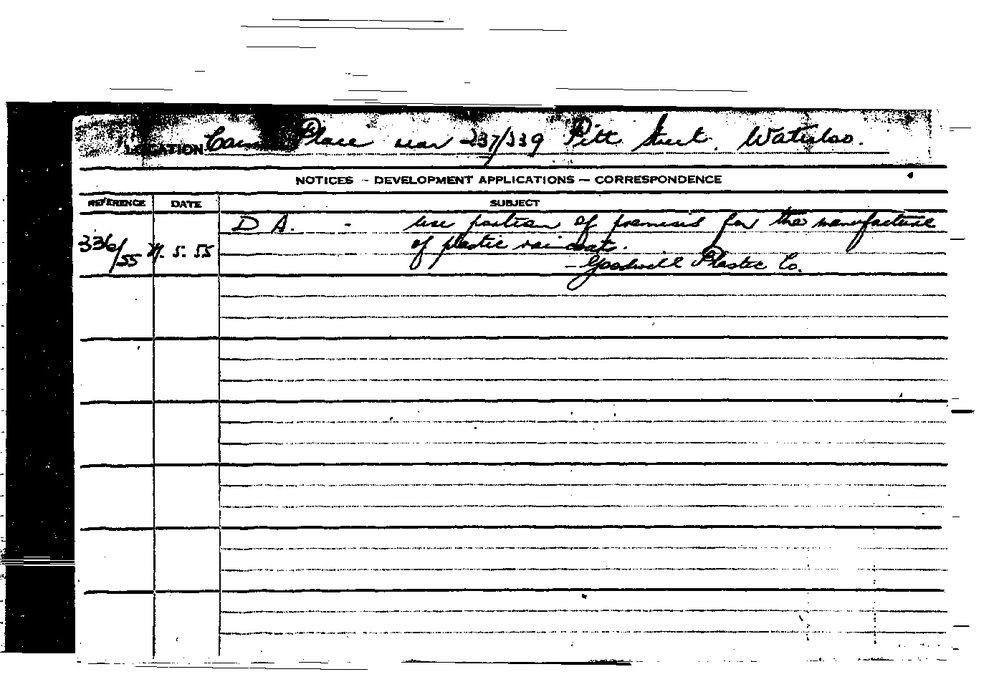 LOCATION Place rear 337/339 Pitt Street. Waterloo.
NOTICES - DEVELOPMENT APPLICATIONS - CORRESPONDENCE
REFERENCE DATE SUBJECT
D A. - use portion of premises for the manufacture
336/55 .5.55 of plastic raincoats.
- Goodwell Plastic Co.